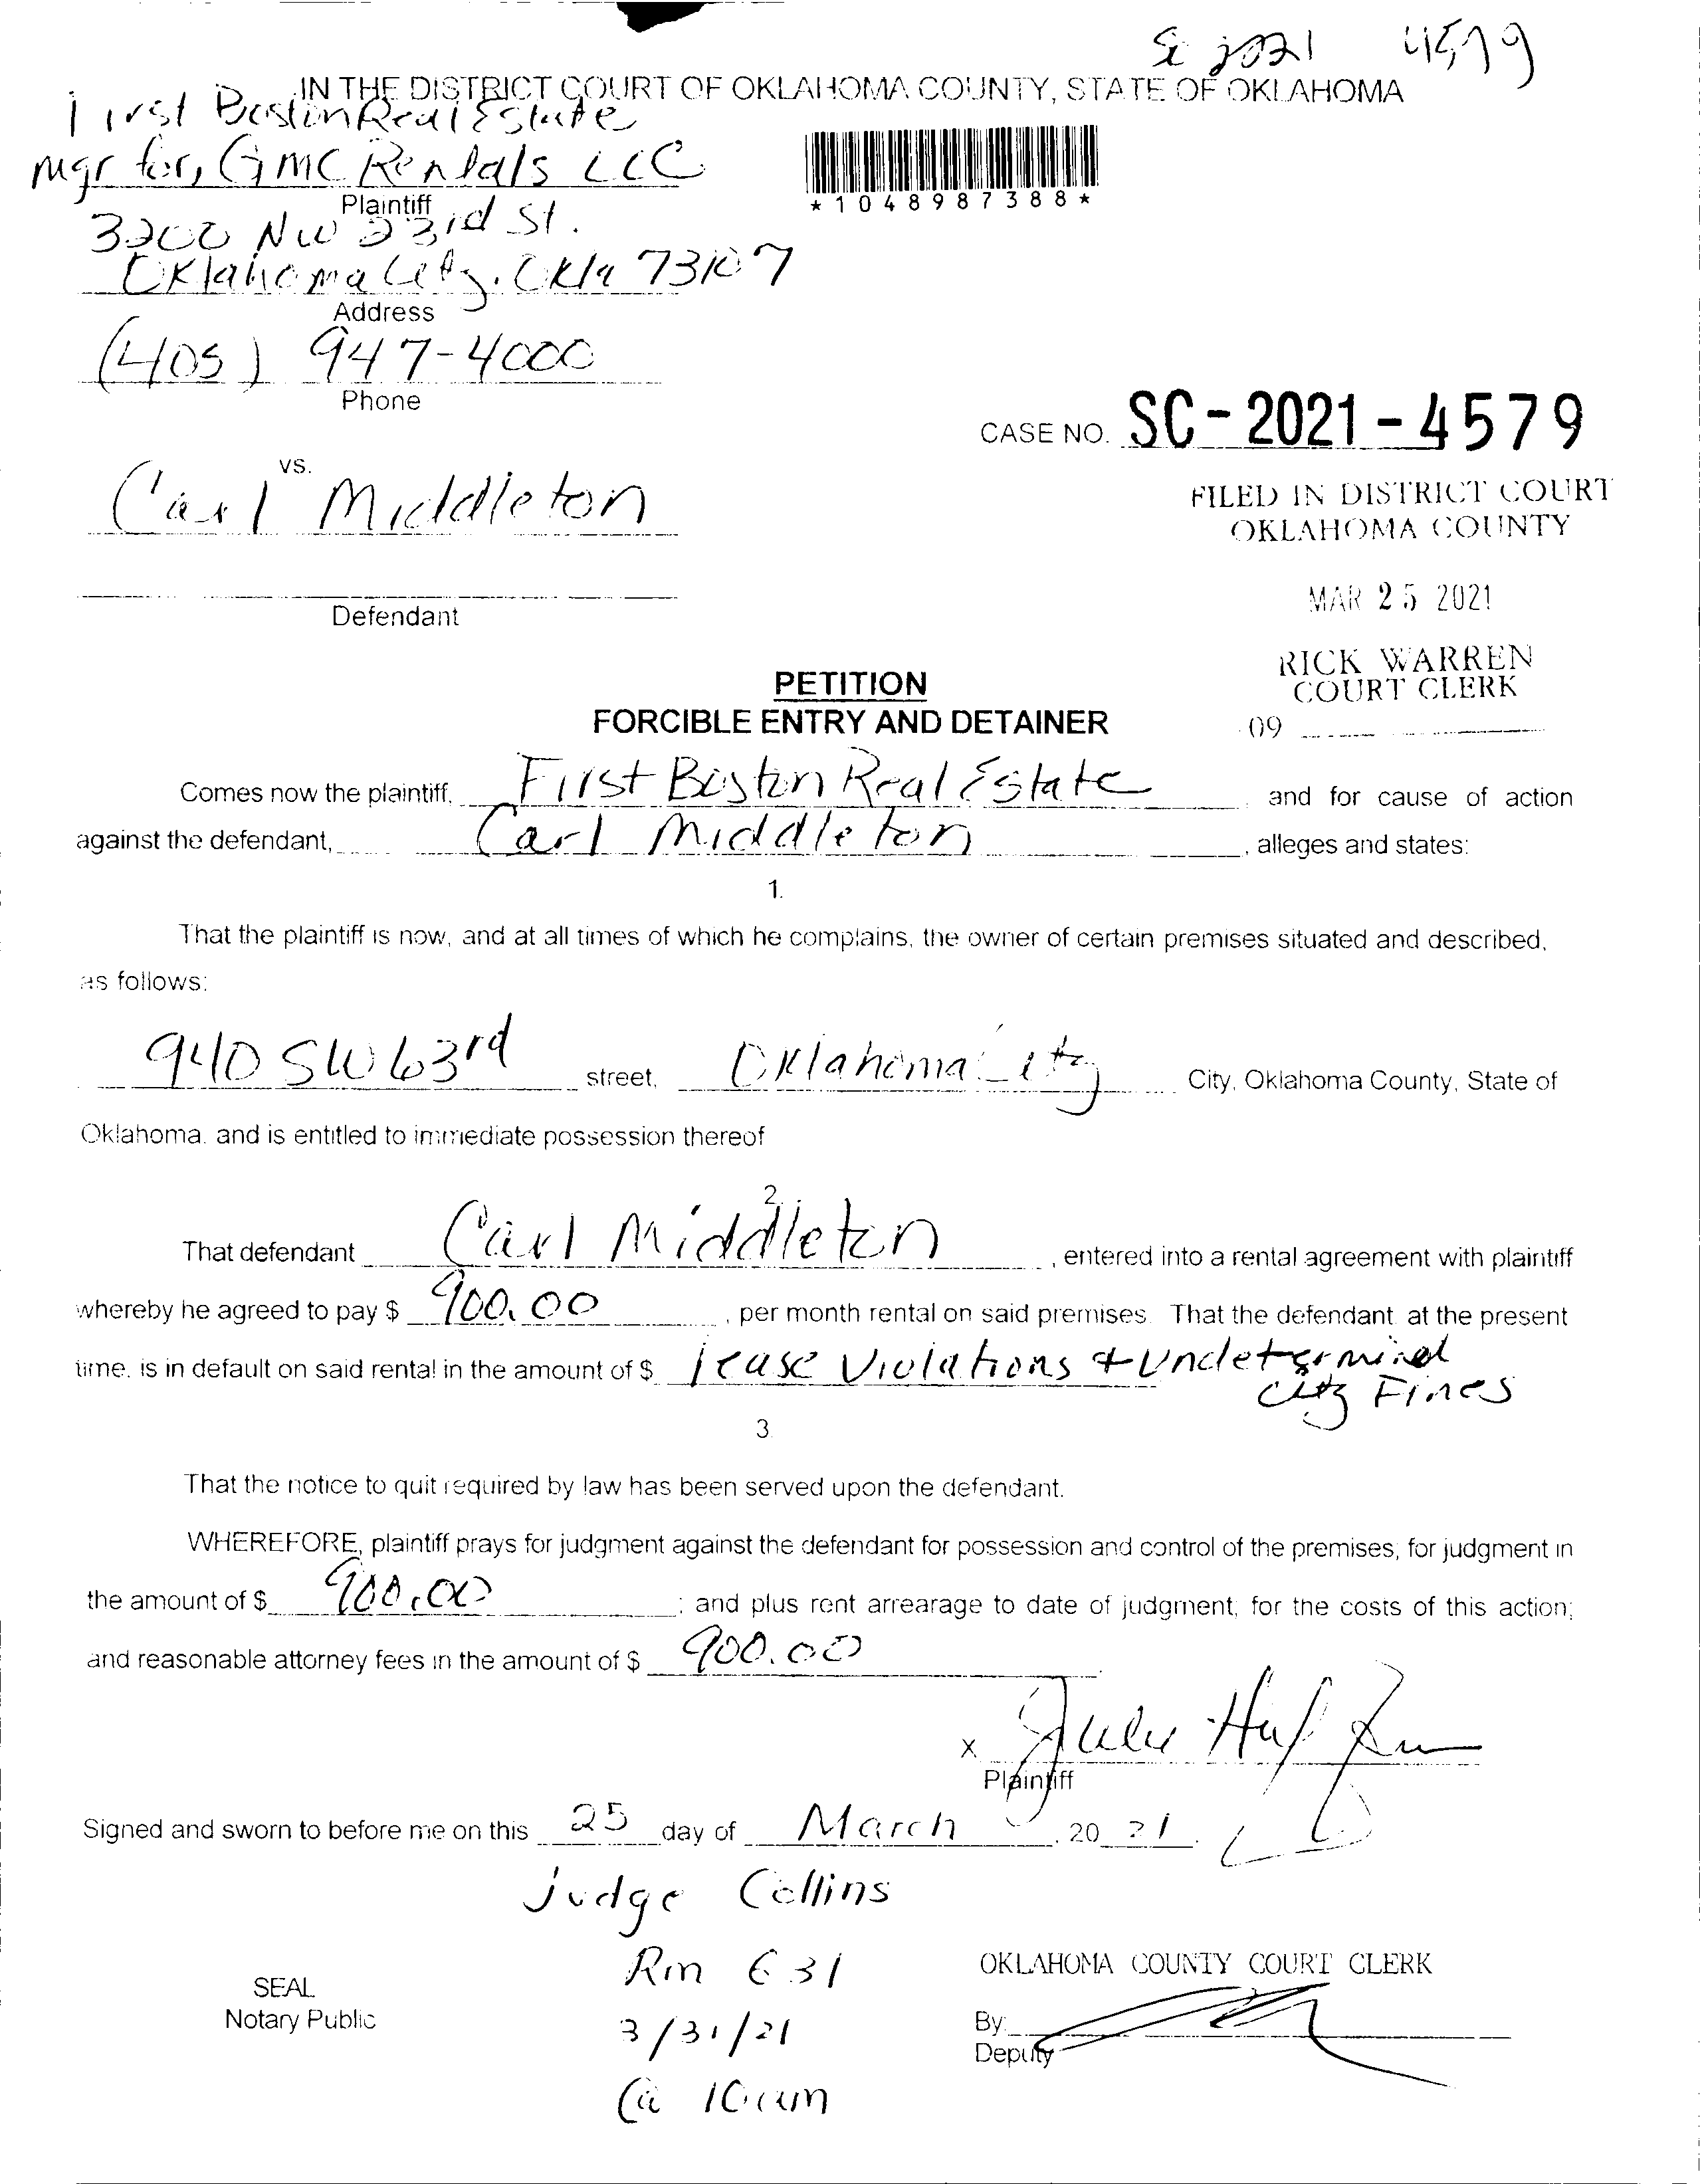 SC 2021 4579
IN THE DISTRICT COURT OF OKLAHOMA COUNTY, STATE OF OKLAHOMA
First Boston Real Estate
mgr for, GMC Rentals LLC
Plaintiff
*1048987388*
3200 NW 23rd St.
Oklahoma City, Okla 73107
Address
(405) 947-4000
Phone
CASE NO. SC-2021-4579
vs.
Carl Middleton
FILED IN DISTRICT COURT
OKLAHOMA COUNTY
Defendant
MAR 25 2021
RICK WARREN
COURT CLERK
09
PETITION
FORCIBLE ENTRY AND DETAINER
Comes now the plaintiff, First Boston Real Estate and for cause of action
against the defendant, Carl Middleton, alleges and states:
1.
That the plaintiff is now, and at all times of which he complains, the owner of certain premises situated and described,
as follows:
940 SW 63rd street, Oklahoma City City, Oklahoma County, State of
Oklahoma, and is entitled to immediate possession thereof
2.
That defendant Carl Middleton, entered into a rental agreement with plaintiff
whereby he agreed to pay $ 900.00, per month rental on said premises. That the defendant at the present
time, is in default on said rental in the amount of $ lease violations + undetermined
City Fines
3.
That the notice to quit required by law has been served upon the defendant.
WHEREFORE, plaintiff prays for judgment against the defendant for possession and control of the premises, for judgment in
the amount of $ 900.00; and plus rent arrearage to date of judgment; for the costs of this action;
and reasonable attorney fees in the amount of $ 900.00
X
Plaintiff
Signed and sworn to before me on this 25 day of March, 20 21.
Judge Collins
Rm 631
3/31/21
@ 10am
SEAL
Notary Public
OKLAHOMA COUNTY COURT CLERK
By:
Deputy